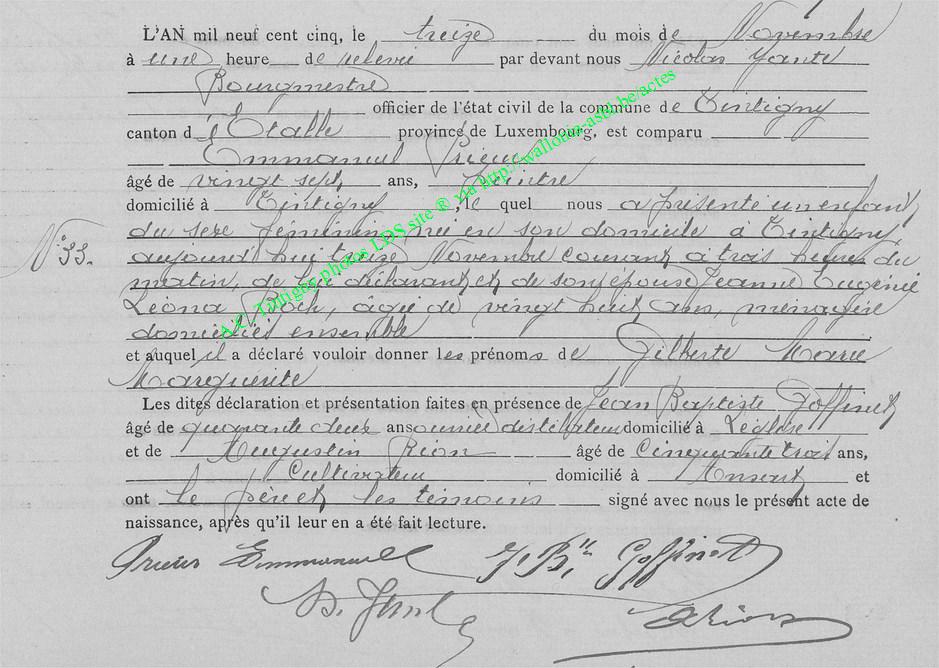 L'AN mil neuf cent cinq, le treize du mois de Novembre
à une heure de relevée par devant nous Nicolas Yante
Bourgmestre
officier de l'état civil de la commune de Tintigny
canton d'Etalle province de Luxembourg, est comparu
Emmanuel
âgé de vingt sept ans, peintre
domicilié à Tintigny, le quel nous a présenté un enfant
du sexe féminin né en son domicile à Tintigny
N° 33.
aujourd'hui treize Novembre courant à trois heures du
matin, de lui déclarant et de son épouse Jeanne Eugénie
Léona Bock, âgée de vingt huit ans, ménagère
domiciliés ensemble
et auquel il a déclaré vouloir donner les prénoms de Gilberte Marie
Marguerite
Les dites déclaration et présentation faites en présence de Jean Baptiste Goffinet
âgé de quarante deux ans domicilié à Léglise
et de Augustin Rion âgé de Cinquante trois ans,
Cultivateur domicilié à Ansart et
ont le père et les témoins signé avec nous le présent acte de
naissance, après qu'il leur en a été fait lecture.
Emmanuel J. Bte Goffinet
A Rion
Tintigny photos LDS site ® via http://wallonia-asbl.be/actes